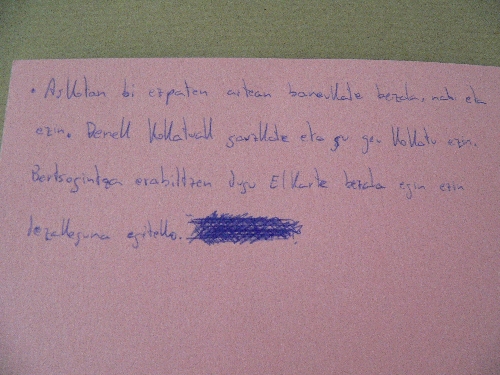 • Askotan bi ezpaten artean baneukate bezala, nahi eta
ezin. Denek kokatuak gauzkate eta gu geu kokatu ezin.
Bertsogintza erabiltzen dugu Elkarte bezala egin ezin
dezakeguna egiteko.